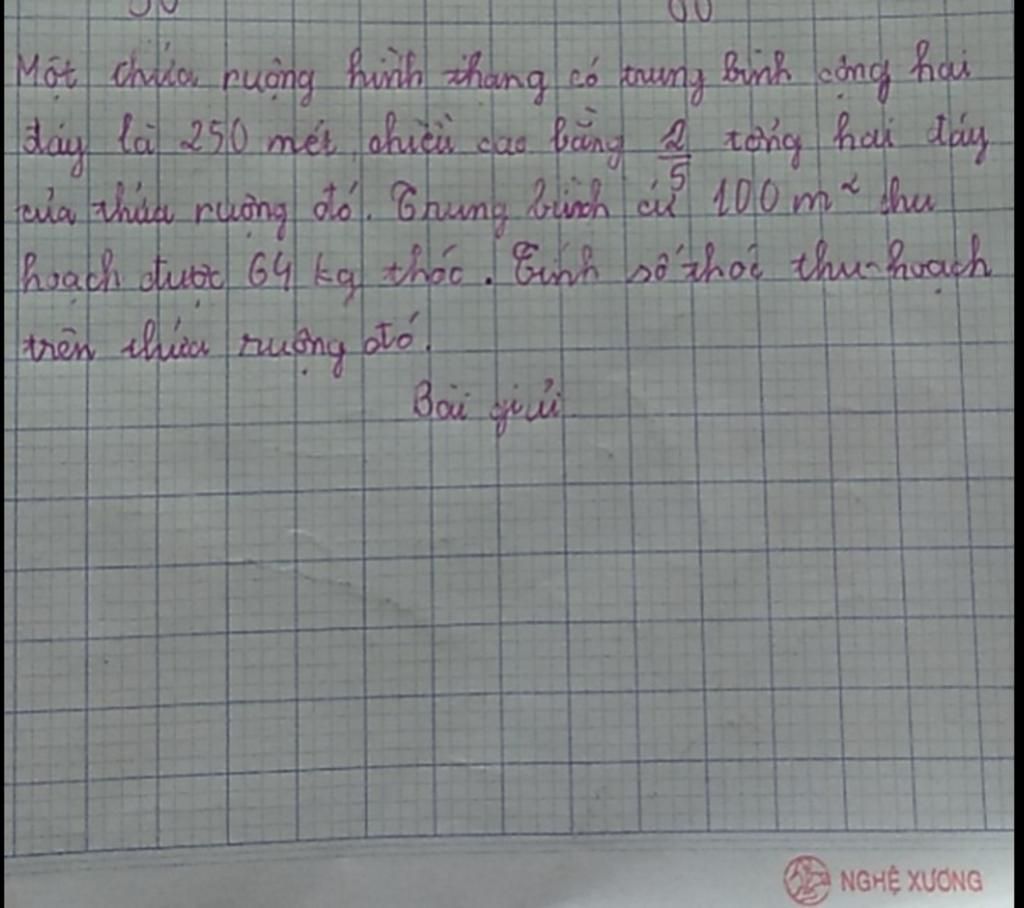 Một thửa ruộng hình thang có trung bình cộng hai
đáy là 250 mét, chiều cao bằng 2/5 tổng hai đáy
của thửa ruộng đó. Trung bình cứ 100 m² thu
hoạch được 64 kg thóc. Tính số thóc thu hoạch
trên thửa ruộng đó.
Bài giải
NGHỆ XƯƠNG